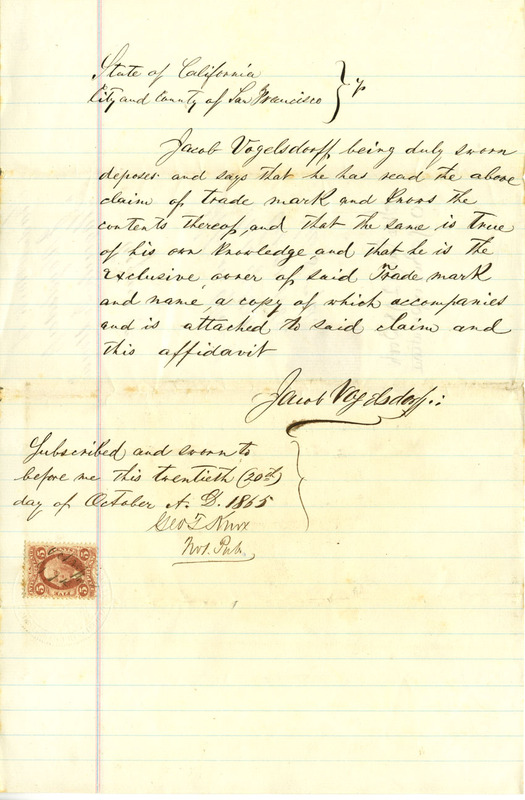 State of California
City and County of San Francisco } ss
Jacob Vogelsdorff being duly sworn
deposes and says that he has read the above
claim of trade mark and knows the
contents thereof, and that the same is true
of his own knowledge, and that he is the
exclusive owner of said Trade mark
and name, a copy of which accompanies
and is attached to said claim and
this affidavit
Jacob Vogelsdorff
Subscribed and sworn to
before me this twentieth (20th)
day of October A. D. 1865
Geo T Knox
Not. Pub.
5 5
5 5